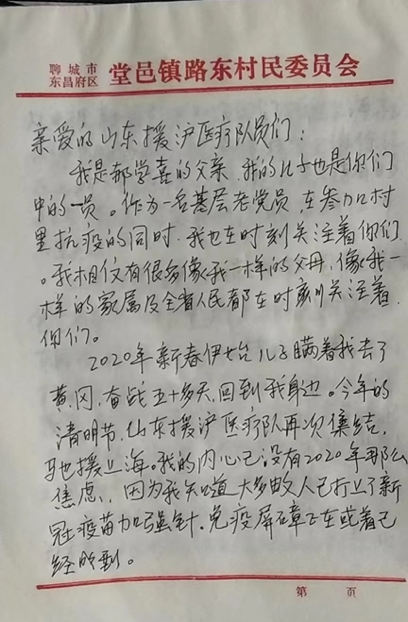 聊城市
东昌府区 堂邑镇路东村民委员会
亲爱的山东援沪医疗队员们：
我是郝学喜的父亲，我的儿子也是你们
中的一员。作为一名基层老党员，在参加村
里抗疫的同时，我也在时刻关注着你们
。我相仪有很多像我一样的父母，像我一
样的家属及全省人民都在时刻关注着
你们。
2020年新春伊始儿子瞒着我去了
黄冈，奋战五十多天，回到我身边。今年的
清明节，山东援沪医疗队再次集结，
驰援上海。我的内心已没有2020年那么
焦虑，因为我知道大多数人已打上了新
冠疫苗加强针，免疫屏障正在或着已
经
第 页